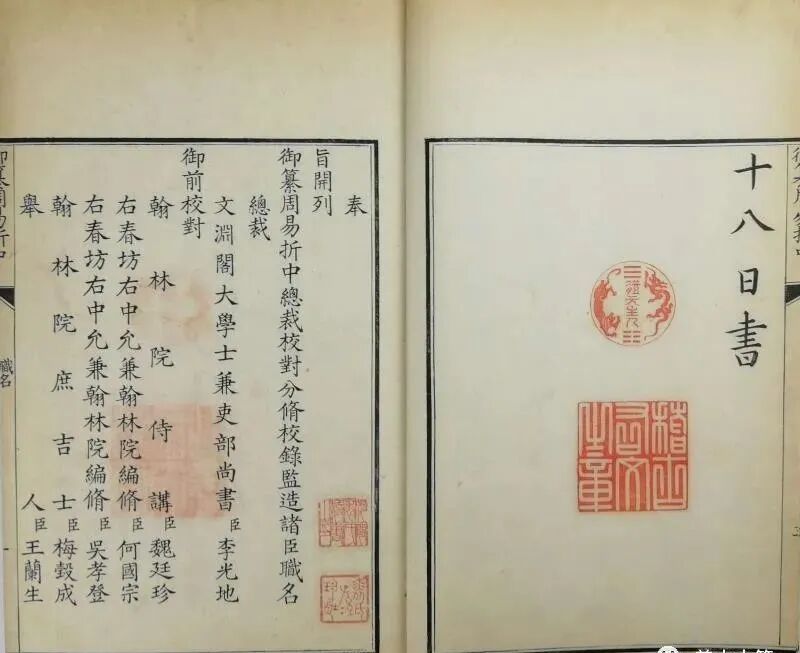 十八日書
稽古右文之章
奉
旨開列
御纂周易折中總裁校對分脩校錄監造諸臣職名
總裁
文淵閣大學士兼吏部尚書臣李光地
御前校對
翰林院侍講臣魏廷珍
右春坊右中允兼翰林院編脩臣何國宗
右春坊右中允兼翰林院編脩臣吳孝登
翰林院庶吉士臣梅瑴成
舉人臣王蘭生
御纂周易折中
職名
一